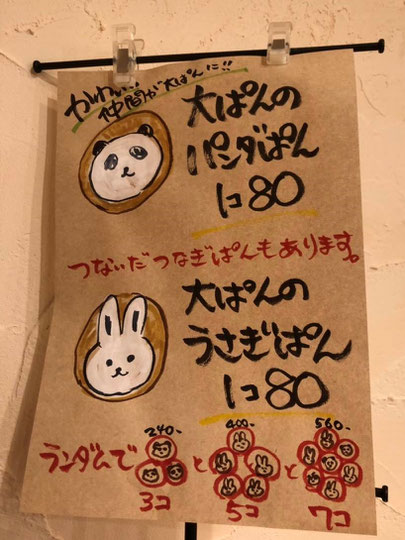 かわいい!!
仲間が大ぱんに!!
大ぱんの
パンダぱん
1コ80
つないだつなぎぱんもあります。
大ぱんの
うさぎぱん
1コ80
240- 400- 560-
ランダムで と と
3コ 5コ 7コ